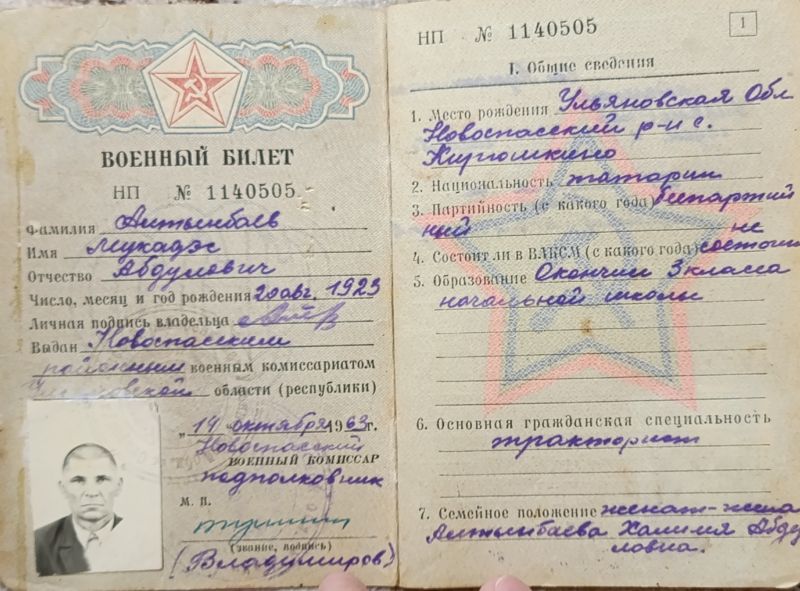 ВОЕННЫЙ БИЛЕТ
НП № 1140505
Фамилия Алтынбаев
Имя Мукадэс
Отчество Абдулович
Число, месяц и год рождения 20 авг. 1923
Личная подпись владельца
Выдан Новоспасским
районным военным комиссариатом
Ульяновской области (республики)
"14 октября 1963 г.
Новоспасский
ВОЕННЫЙ КОМИССАР
подполковник
М. П.
(звание, подпись)
(Владимиров)
НП № 1140505
1
I. Общие сведения
1. Место рождения Ульяновская Обл
Новоспасский р-н с.
2. Национальность татарин
3. Партийность (с какого года) беспартий
ный
4. Состоит ли в ВЛКСМ (с какого года) не состоит
5. Образование Окончил 3 класса
начальной школы
6. Основная гражданская специальность
тракторист
7. Семейное положение женат - жена
Алтынбаева Халимя Абду
ловна.